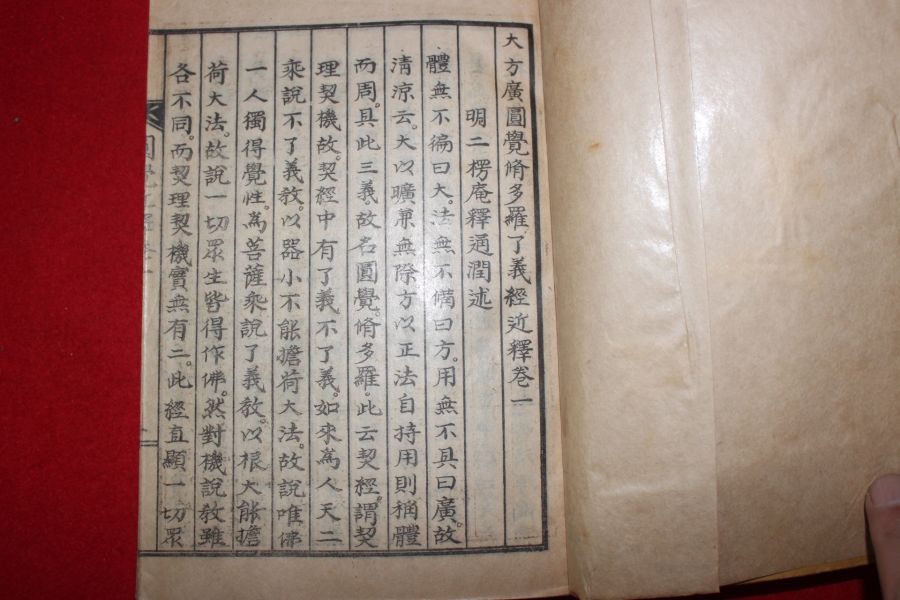 大方廣圓覺脩多羅了義經近釋卷一
明二楞庵釋通潤述
體無不徧曰大。法無不備曰方。用無不具曰廣。故
清涼云。大以曠兼無際方以正法自持用則稱體
而周。具此三義。故名圓覺。脩多羅。此云契經。謂契
理契機故。契經中有了義不了義。如來爲人天二
乘說不了義教。以器小不能擔荷大法。故說唯佛
一人獨得覺性。爲菩薩乘說了義教。以根大能擔
荷大法。故說一切眾生皆得作佛。然對機說教雖
各不同。而契理契機實無有二。此經直顯一切眾